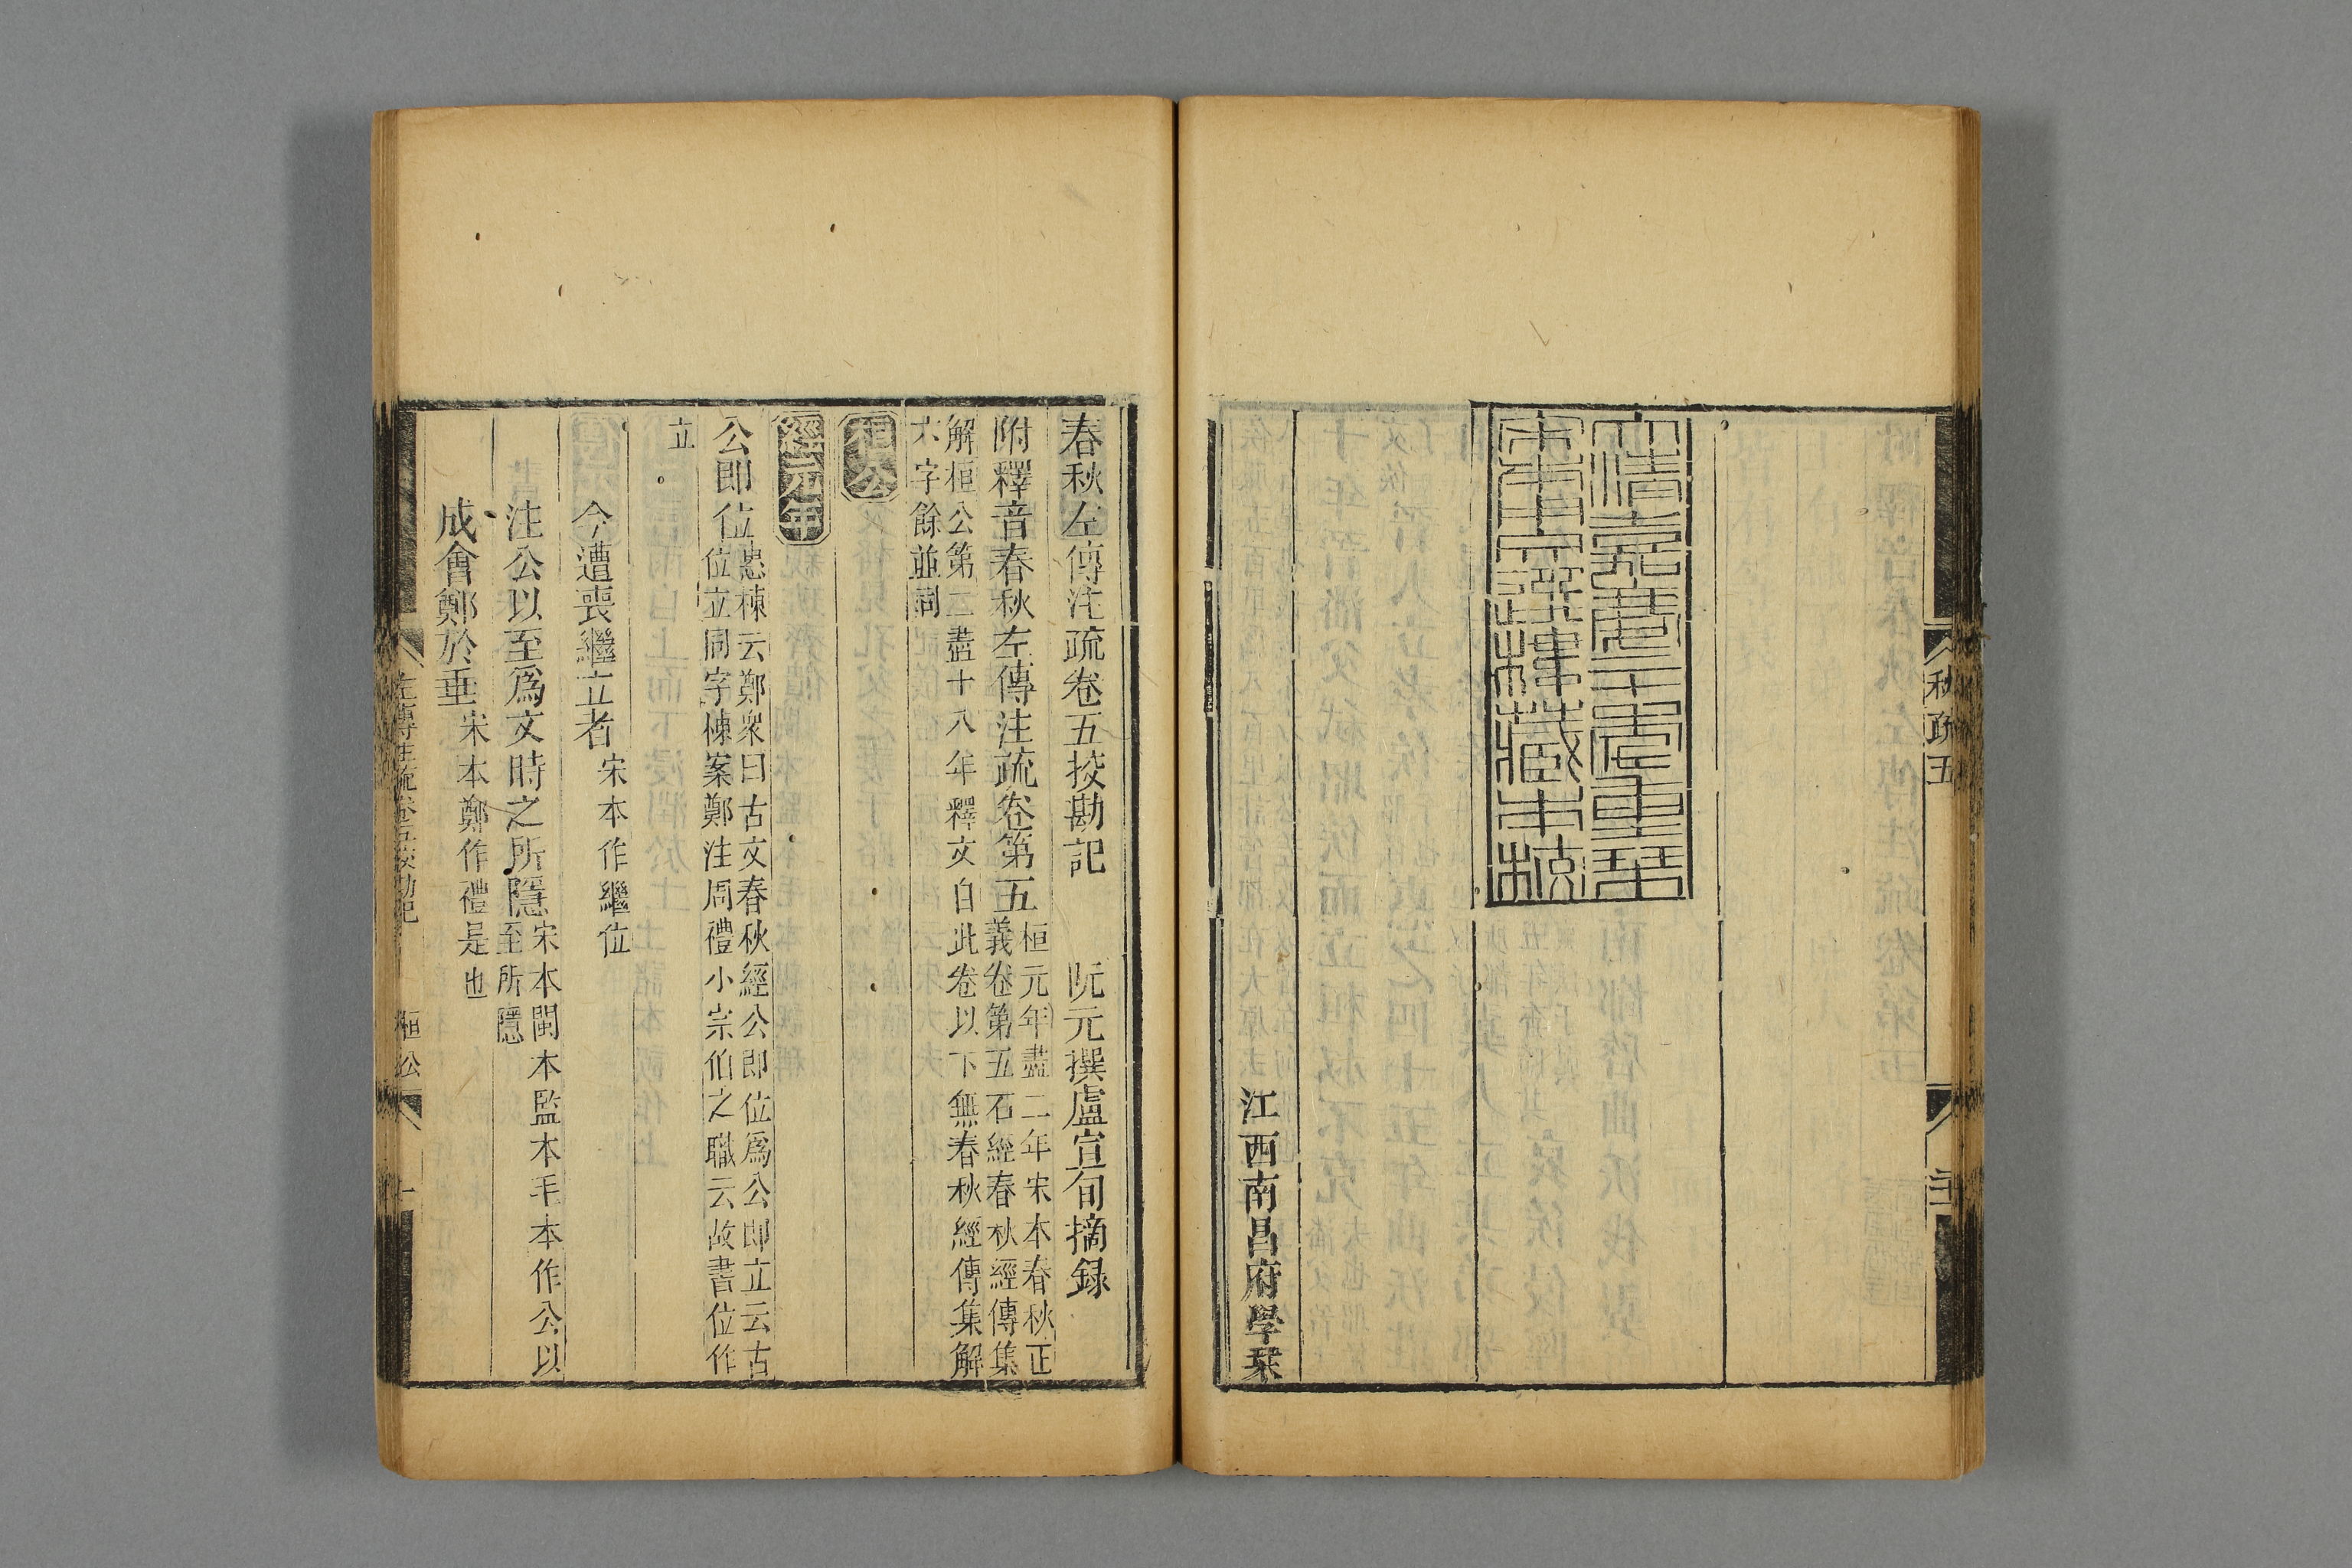 秋疏五
大清嘉慶二十年重栞
宋本用文選樓藏本校
江西南昌府學栞
春秋左傳注疏卷五挍勘記　阮元撰盧宣旬摘録
附釋音春秋左傳注疏卷第五桓元年盡二年宋本春秋正
義卷第五石經春秋經傳集
解桓公第二盡十八年釋文自此卷以下無春秋經傳集解
六字餘並同
桓公
經元年
公即位惠棟云鄭衆曰古文春秋經公即位爲公即立云古
位立同字棟案鄭注周禮小宗伯之職云故書位作
立
今遭喪繼立者宋本作繼位
注公以至爲文時之所隱宋本閩本監本毛本作公以
至所隱
成會鄭於垂宋本鄭作禮是也
左傳注疏卷五挍勘記　桓公　一